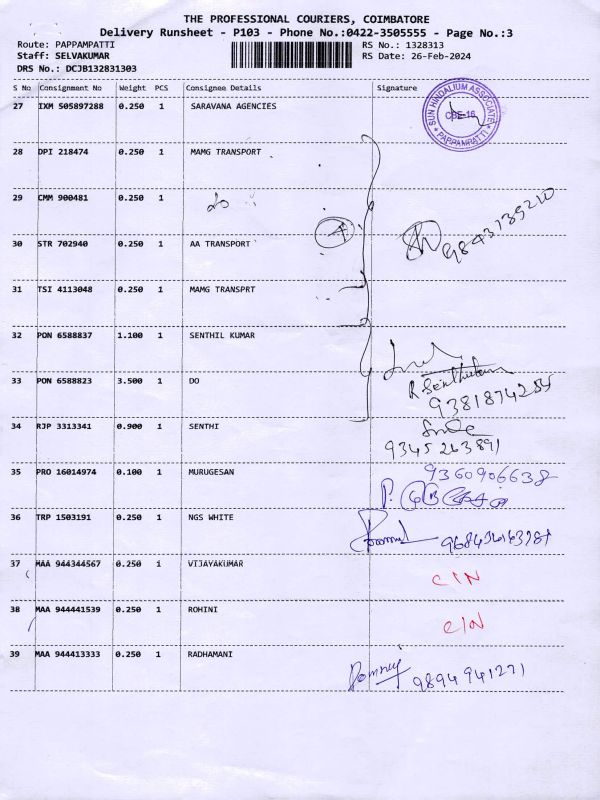 THE PROFESSIONAL COURIERS, COIMBATORE
Delivery Runsheet - P103 - Phone No.:0422-3505555 - Page No.:3
Route: PAPPAMPATTI RS No.: 1328313
Staff: SELVAKUMAR RS Date: 26-Feb-2024
DRS No.: DCJB132831303
S No Consignment No Weight PCS Consignee Details Signature
27 IXM 505897288 0.250 1 SARAVANA AGENCIES
SUN HINDALIUM ASSOCIATE
CBE-16
PAPPAMPATTI
28 DPI 218474 0.250 1 MAMG TRANSPORT
29 CMM 900481 0.250 1 do
4
9843139210
30 STR 702940 0.250 1 AA TRANSPORT
31 TSI 4113048 0.250 1 MAMG TRANSPRT
32 PON 6588837 1.100 1 SENTHIL KUMAR
33 PON 6588823 3.500 1 DO
34 RJP 3313341 0.900 1 SENTHI
9345263891
35 PRO 16014974 0.100 1 MURUGESAN
9360906638
36 TRP 1503191 0.250 1 NGS WHITE
37 MAA 944344567 0.250 1 VIJAYAKUMAR C/N
38 MAA 944441539 0.250 1 ROHINI C/N
39 MAA 944413333 0.250 1 RADHAMANI
9894941271